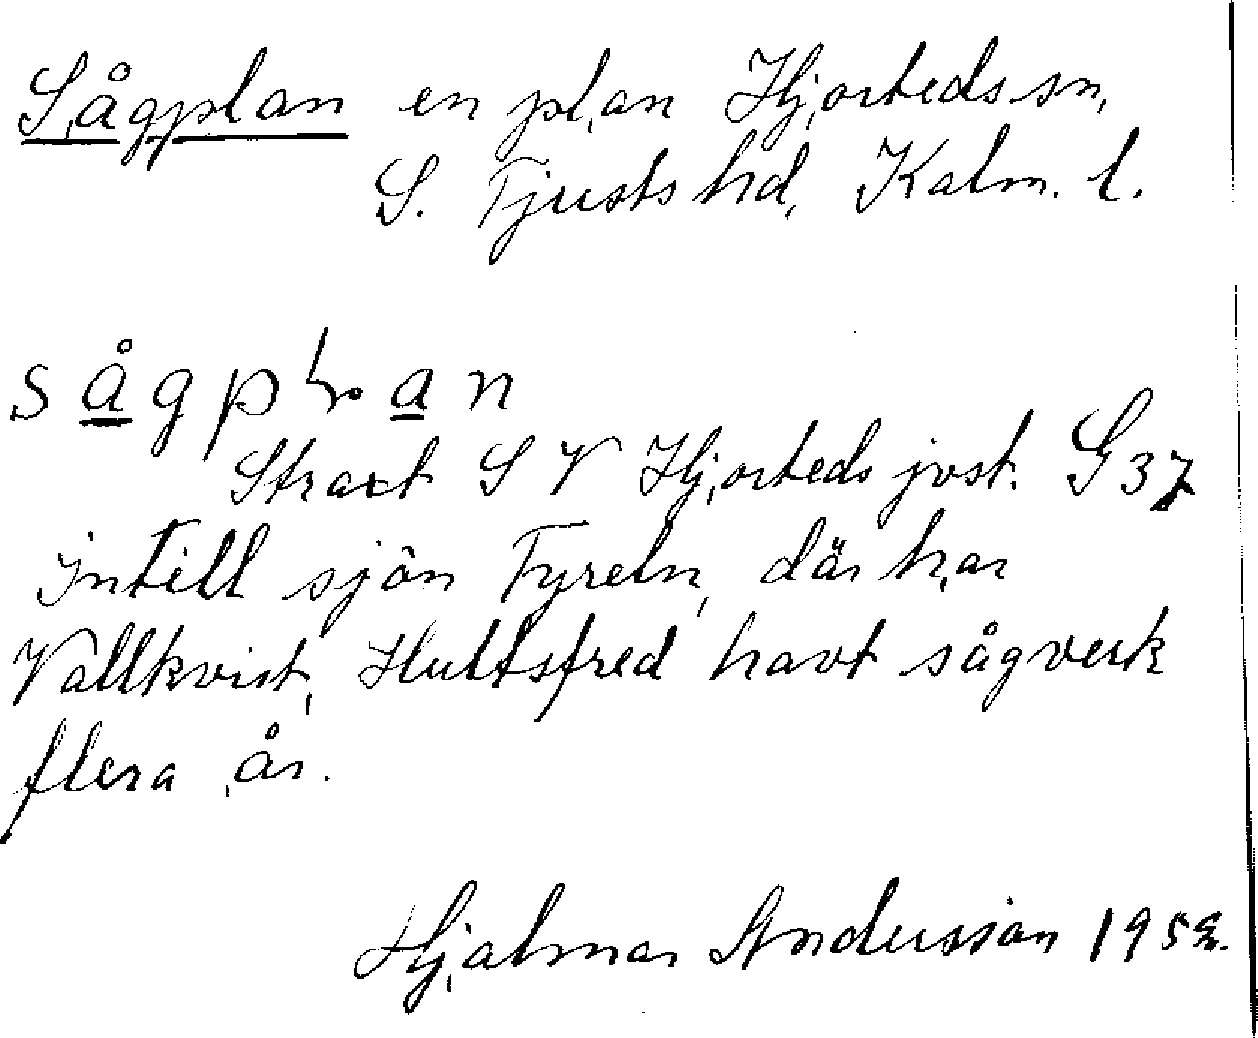 Sågplan en plan Hjorteds sn,
S. Tjusts hd, Kalm. l.
sågplan
Straxt S V Hjorteds jvst. G37
intill sjön Tyreln, där har
Vallkvist, Hultsfred havt sågverk
flera år.
Hjalmar Andersson